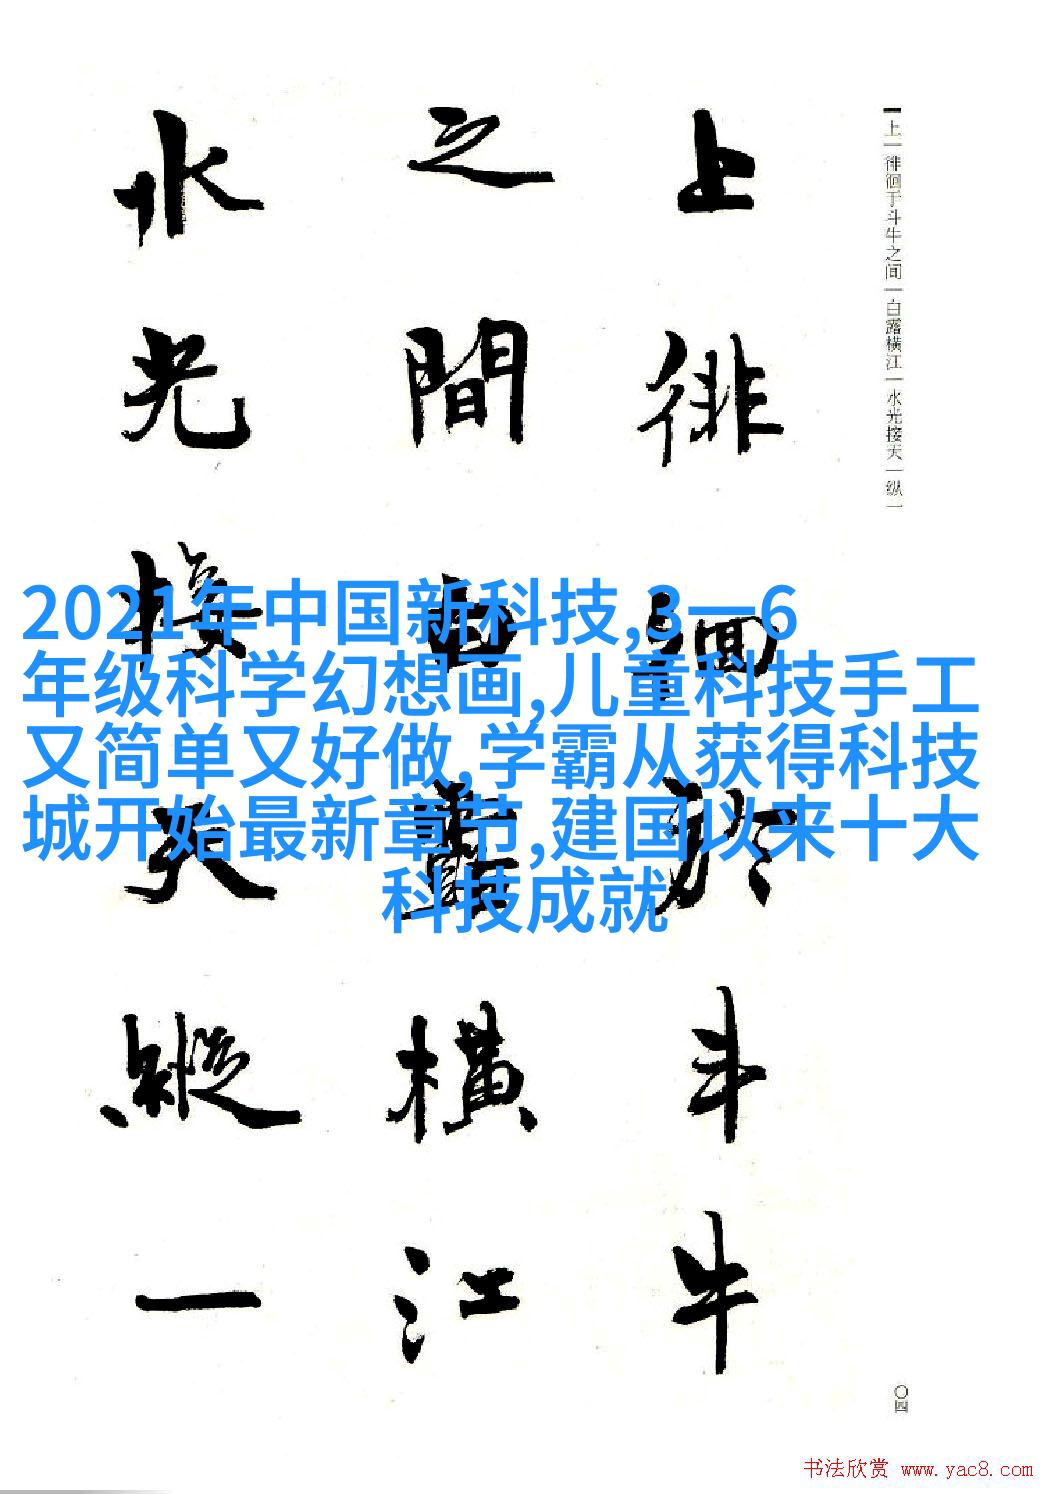 上徘徊於斗牛
之間白露橫江
水光接天縱一
上一徘徊于斗牛之间一白露横江一水光接天一纵一
〇四
2021年中国新科技,3一6
年级科学幻想画,儿童科技手工
又简单又好做,学霸从获得科技
城开始最新章节,建国以来十大
科技成就
书法欣赏 www.yac8.com